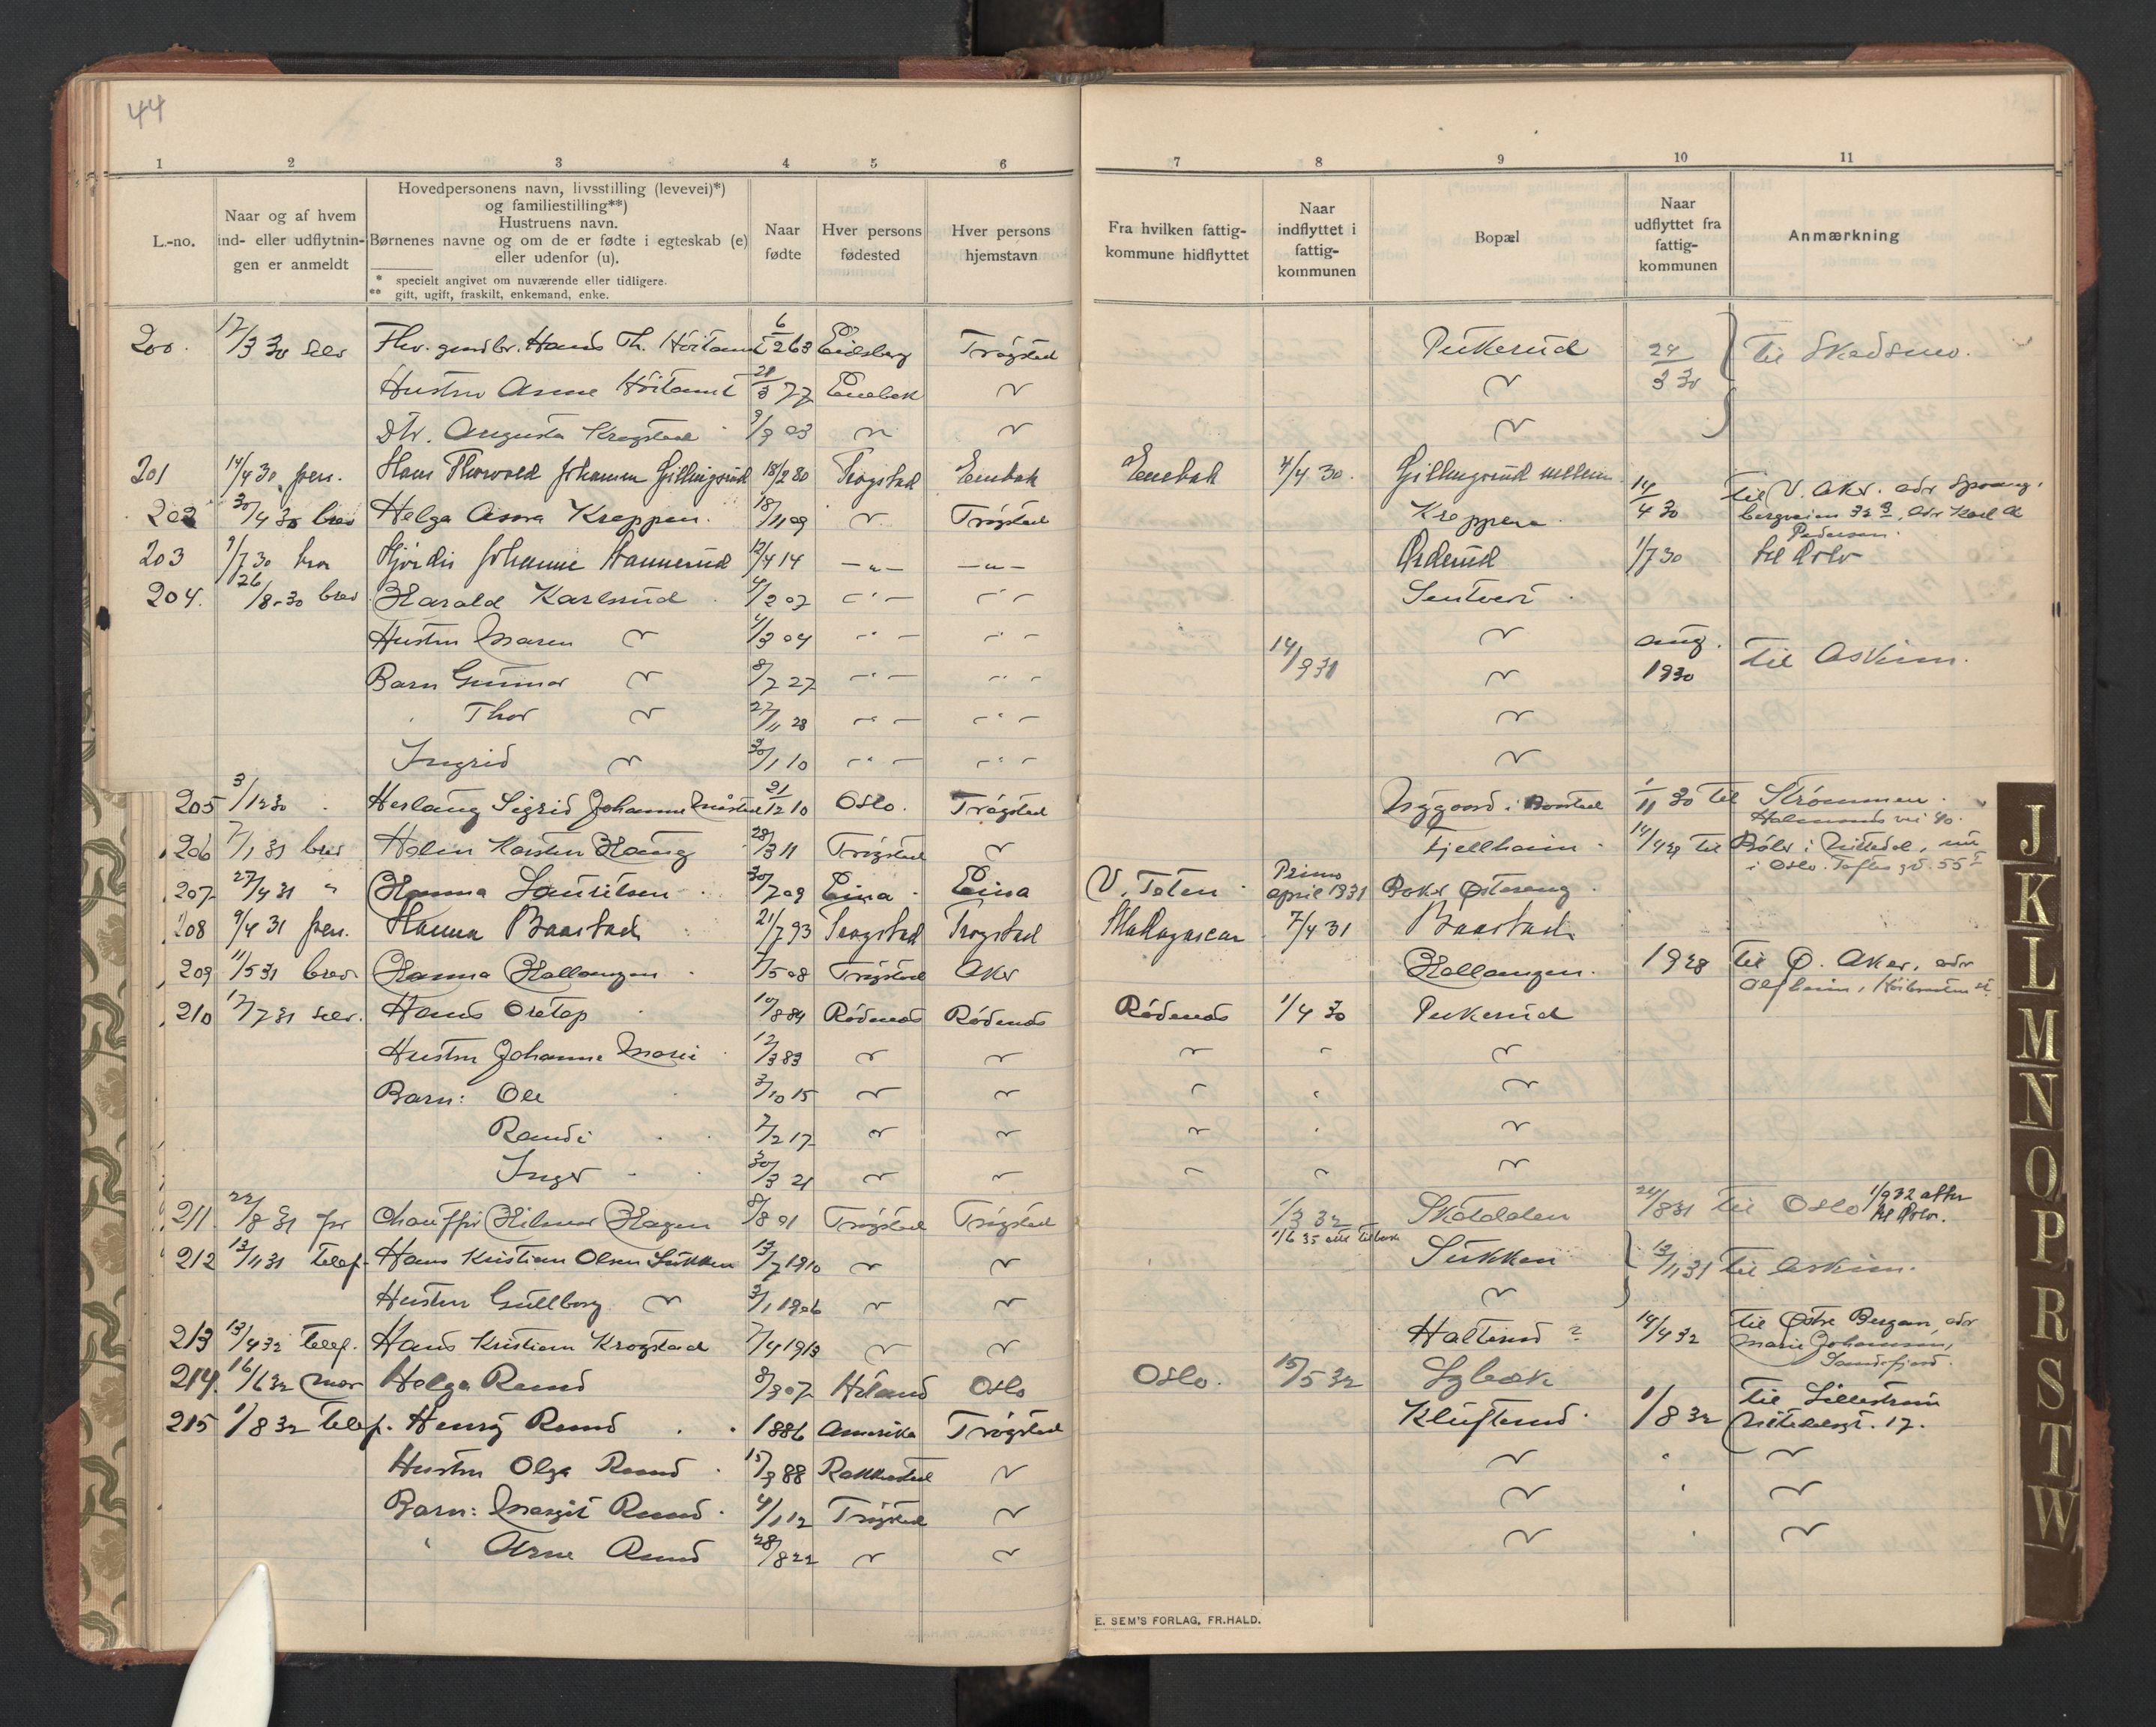 44
1 2 3 4 5 6 7 8 9 10 11
L.-no.
Naar og af hvem
ind- eller udflytnin-
gen er anmeldt
Hovedpersonens navn, livsstilling (levevei)*)
og familiestilling**)
Hustruens navn.
Børnenes navne og om de er fødte i egteskab (e)
eller udenfor (u).
* specielt angivet om nuværende eller tidligere.
** gift, ugift, fraskilt, enkemand, enke.
Naar
fødte
Hver persons
fødested
Hver persons
hjemstavn
Fra hvilken fattig-
kommune hidflyttet
Naar
indflyttet i
fattig-
kommunen
Bopæl
Naar
udflyttet fra
fattig-
kommunen
Anmærkning
200. 17/3 30 selv Fhv. gmdbr. Hans Th. Høitomt 6/12 63 Eidsberg Trøgstad Pukerud 24/3 30 Til Skedsmo.
Hustru Anne Høitomt 21/3 77 Enebak
Dtr. Augusta Krogstad 9/9 03
201 14/4 30 pers. Hans Thorvald Johansen Gillingsrud 18/2 80 Trøgstad Enebak Enebak 4/4 30. Gillingsrud mellem
202 30/4 30 brev Helga Asora Kroppen. 18/11 09 Trøgstad Kroppen 14/4 30 Til V. Aker. adr
bergveien 32, adr Karl A
Pedersen.
203 1/7 30 Hjørdis Johanne Hannerud 12/4 14 — „ — — „ — Ørderud 1/7 30 til Oslo
204. 26/8-30 brev Harald Karlsrud 4/2 07 — " — — " — Sentvedt
Hustru Maren 4/3 04 — " — — " — 14/9 31 aug. 1930 Til Askim.
Barn Gunnar 8/7 27 — " — — " —
Thor 27/11 28 — " — — " —
Ingrid 30/1 10 — " — — " —
205 3/12 30 Herlaug Sigrid Johanne 21/12 10 Oslo. Trøgstad Nygaard i Baastad 1/11 30 Til Strømmen.
vei 40.
206 7/1 31 brev Holm Karsten Haug 28/3 11 Trøgstad Fjellheim 14/4 29 Til i Nittedal, nu
i Oslo. Toftes gd. 55
207 27/4 31 " Hanna Lauritsen 30/7 09 Eina Eina V. Toten Primo
april 1931 Østereng
208 9/4 31 pers. Hanna Baastad 21/7 93 Trøgstad Trøgstad Madagascar 7/4 31 Baastad
209 11/5 31 brev Hanna Hallangen /5 08 Trøgstad Aker Hallangen. 1928 Til Ø. Aker, adr
Alfheim,
210 17/7 31 selv. Hans Oretop 10/8 84 Rødenes Rødenes Rødenes 1/4 30 Pukerud
Hustru Johanne Marie 12/3 83
Barn: Ole 3/10 15
Randi 7/2 17
Inger 30/3 21
211. 22/8 31 Chauffør Hilmar Hagen 8/8 91 Trøgstad Trøgstad 1/3 32 Skotdalen 24/8 31 Til Oslo 1/9 32 atter
til Oslo.
212 13/11 31 telef. Hans Kristian Olsen Sukken 13/7 1910 1/6 35 att tilbake Sukken 13/11 31 Til Askim.
Hustru Gullborg 3/1 1906
213 13/4 32 telef. Hans Kristian Krogstad 7/4 1913 Halterud ? 14/4 32 Til Østre Bergan, adr
Marie Johansen,
Sandefjord.
214. 16/6 32 mor Helga Rund 8/3 07 Høland Oslo Oslo. 15/5 32 Lybæk
215 1/8 32 telef. Henry Rund 1886 Amerika Trøgstad Klufterud 1/8 32 Til Lillestrøm
Nittedalsgt. 17.
Hustru Olga Rund 15/9 88 Rakkestad
Barn: Margit Rund 4/1 12 Trøgstad
Arne Rund 28/8 22
E. SEM'S FORLAG, FR.HALD.
J
K
L
M
N
O
P
R
S
T
W